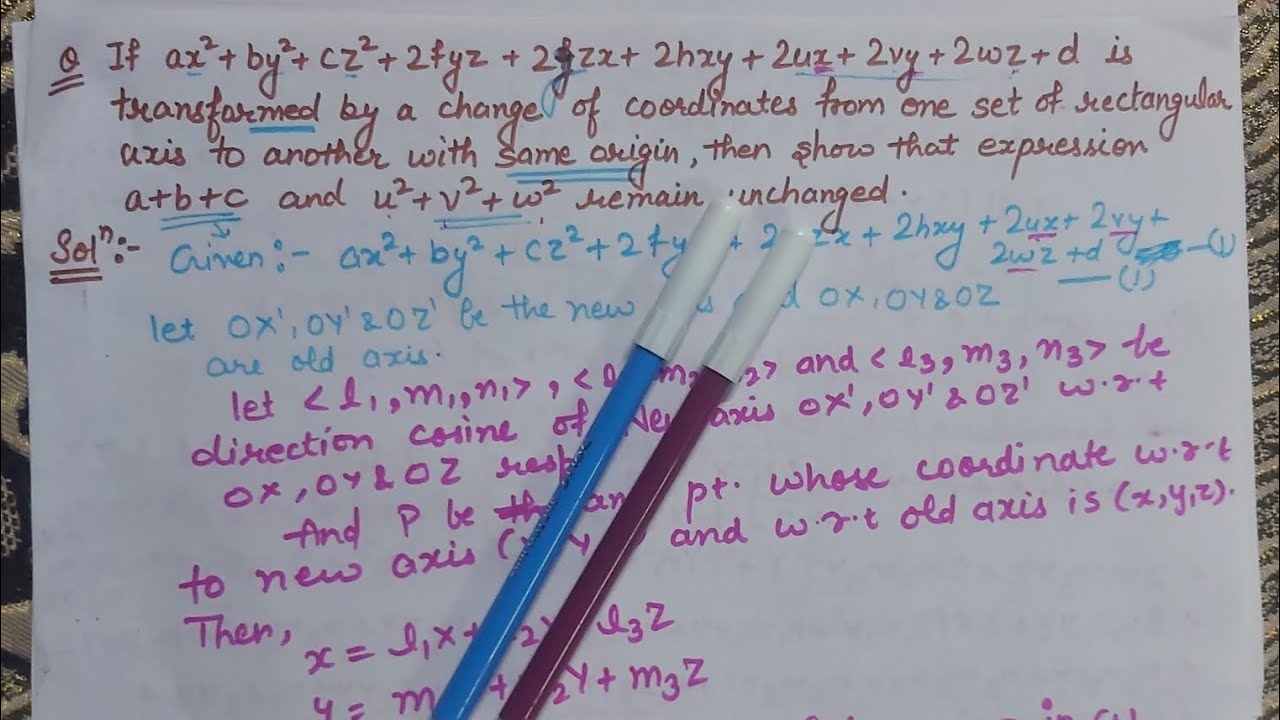 Q If ax²+by²+cz²+2fyz+2gzx+2hxy+2ux+2vy+2wz+d is
transformed by a change of coordinates from one set of rectangular
axis to another with same origin, then show that expression
a+b+c and u²+v²+w² remain unchanged.
Solⁿ:- Given:- ax²+by²+cz²+2fy + 2 zx+2hxy+2ux+2vy+
2wz+d —(1)
—(1)
let OX', OY' & OZ' be the new OX, OY & OZ
are old axis.
let <l₁,m₁,n₁>, <l m ₂> and <l₃,m₃,n₃> be
direction cosine of New axis OX', OY' & OZ' w.r.t
OX, OY & OZ resp
And P be pt. whose coordinate w.r.t
to new axis ( and w.r.t old axis is (x,y,z).
Then,
x = l₁X+ ₂ l₃Z
y = m + ₂Y+m₃Z
in (1)